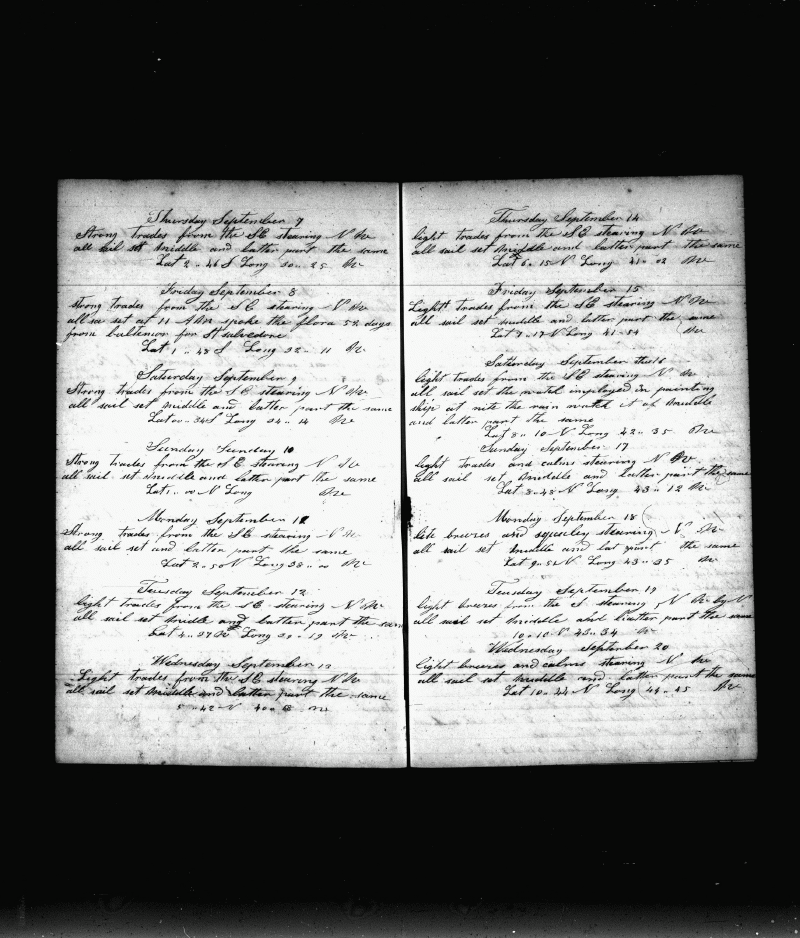 Thursday September 7
Strong trades from the SE stearing N W
all sail set middle and latter part the same
Lat 2 .. 46 S Long 30 .. 25 W
Friday September 8
strong trades from the SE stearing N W
all sa set at 11 AM spoke the flora 52 days
from baltimor for St
Lat 1 .. 48 S Long 32 .. 11 W
Saturday September 9
Strong trades from the SE stearing N W
all sail set middle and latter part the same
Lat 00 .. 34 S Long 34 .. 14 W
Sunday Sunday 10
Strong trades from the SE stearing N W
all sail set middle and latter part the same
Lat 1 .. 00 N Long W
Monday September 11
Strong trades from the SE stearing N W
all sail set and latter part the same
Lat 2 .. 50 N Long 38 .. 00 W
Tuesday September 12
light trades from the SE stearing N W
all sail set midle and latter part the same
Lat 4 .. 27 N Long 39 .. 19 W
Wednesday September 13
Light trades from the SE stearing N W
all sail set middle and latter part the same
5 .. 42 N 40 .. W
Thursday September 14
light trades from the SE stearing N W
all sail set middle and latter part the same
Lat 6 .. 15 N Long 41 .. 02 W
Friday September 15
Light trades from the SE stearing N W
all sail set middle and latter part the same
Lat 7 .. 17 N Long 41 .. 54 W
Saturday September the 16
light trades from the SE stearing N W
all sail set the watch imployed in painting
ship at nite the rain watch it of middle
and latter part the same
Lat 8 .. 10 N Long 42 .. 35 W
Sunday September 17
light trades and calms stearing N W
all sail set middle and latter part the same
Lat 8 .. 48 N Long 43 .. 12 W
Monday September 18
lite brezes and squaley stearing N W
all sail set middle and lat part the same
Lat 9 .. 52 N Long 43 .. 35 W
Tuesday September 19
light brezes from the S stearing N W by N
all sail set middle and latter part the same
10 .. 10 N 43 .. 34 W
Wednesday September 20
light brezes and calms stearing N W
all sail set middle and latter part the same
Lat 10 .. 44 N Long 44 .. 45 W